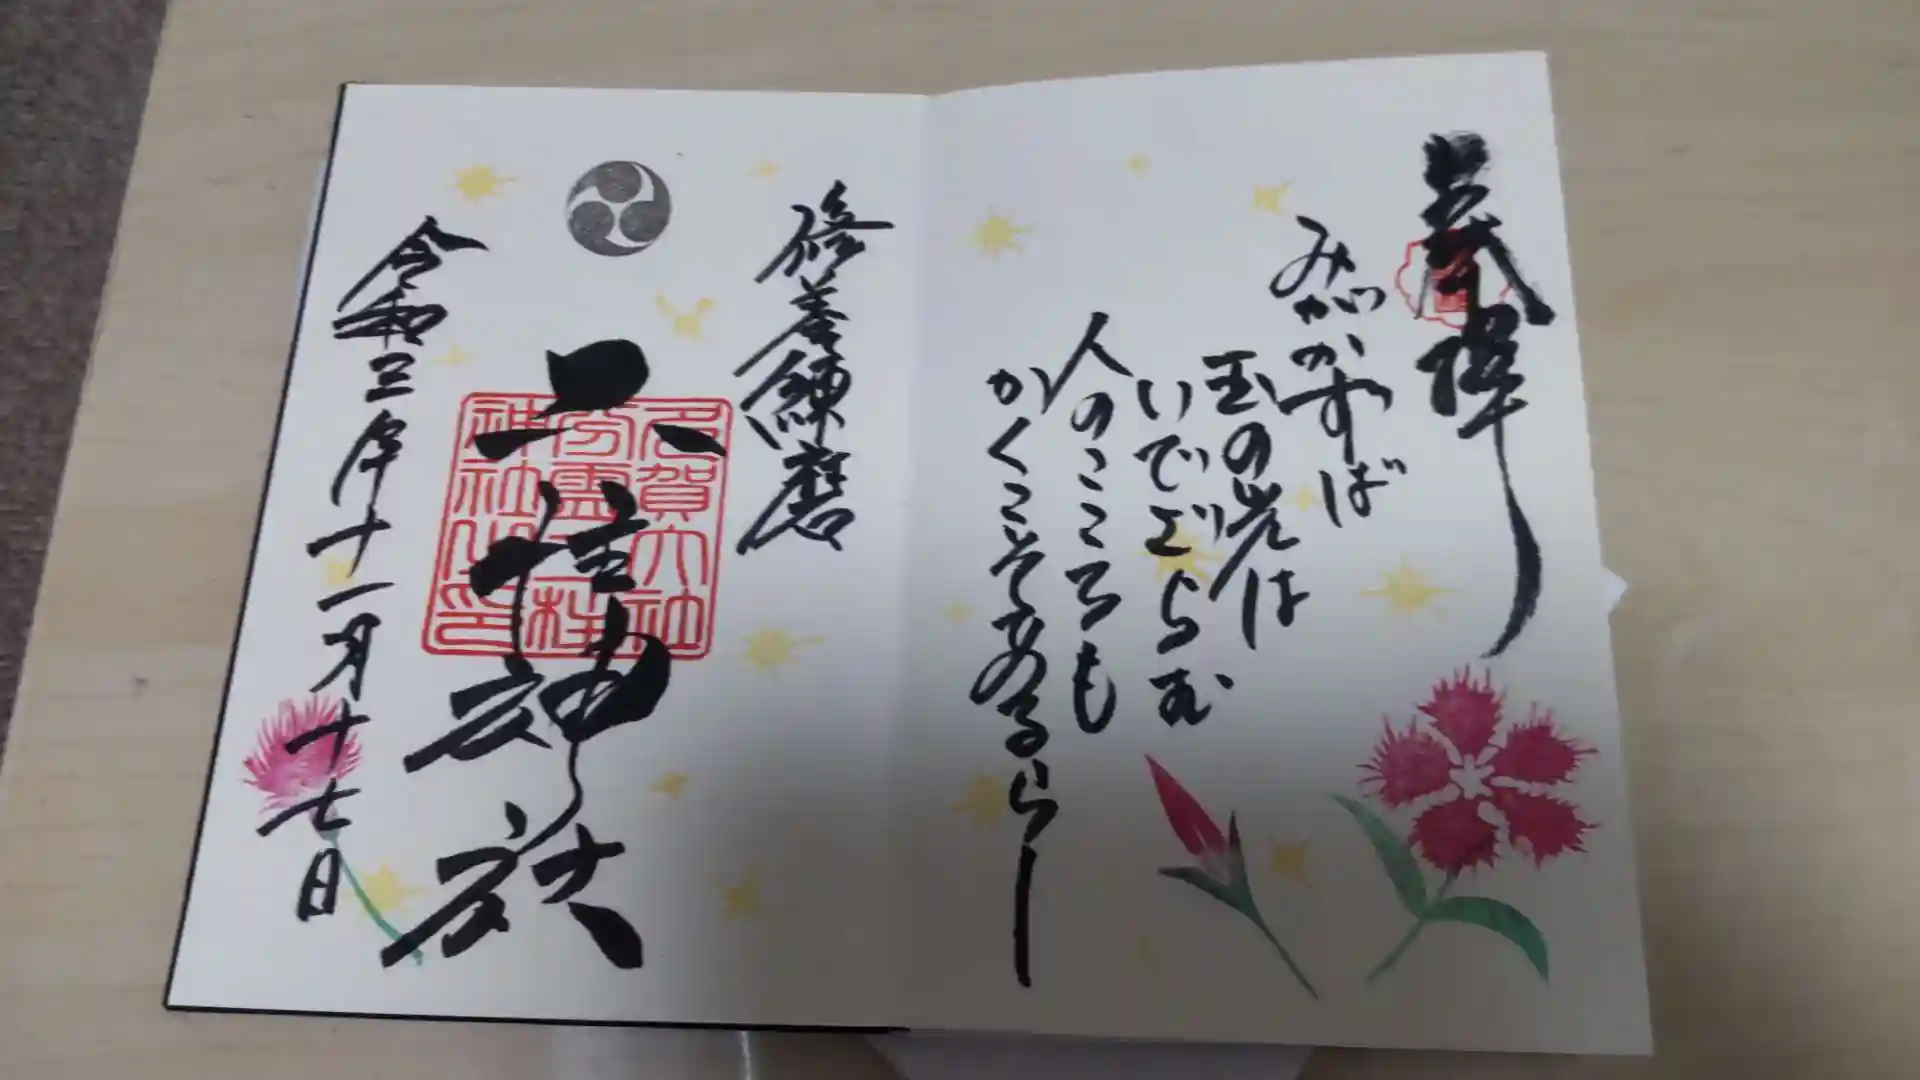 奉拝
みがかずば
玉の光は
いでざらむ
人のこころも
かくこそあるらし
修養練磨
二柱神社
多賀大社
分霊二柱
神社之印
令和三年十一月十七日